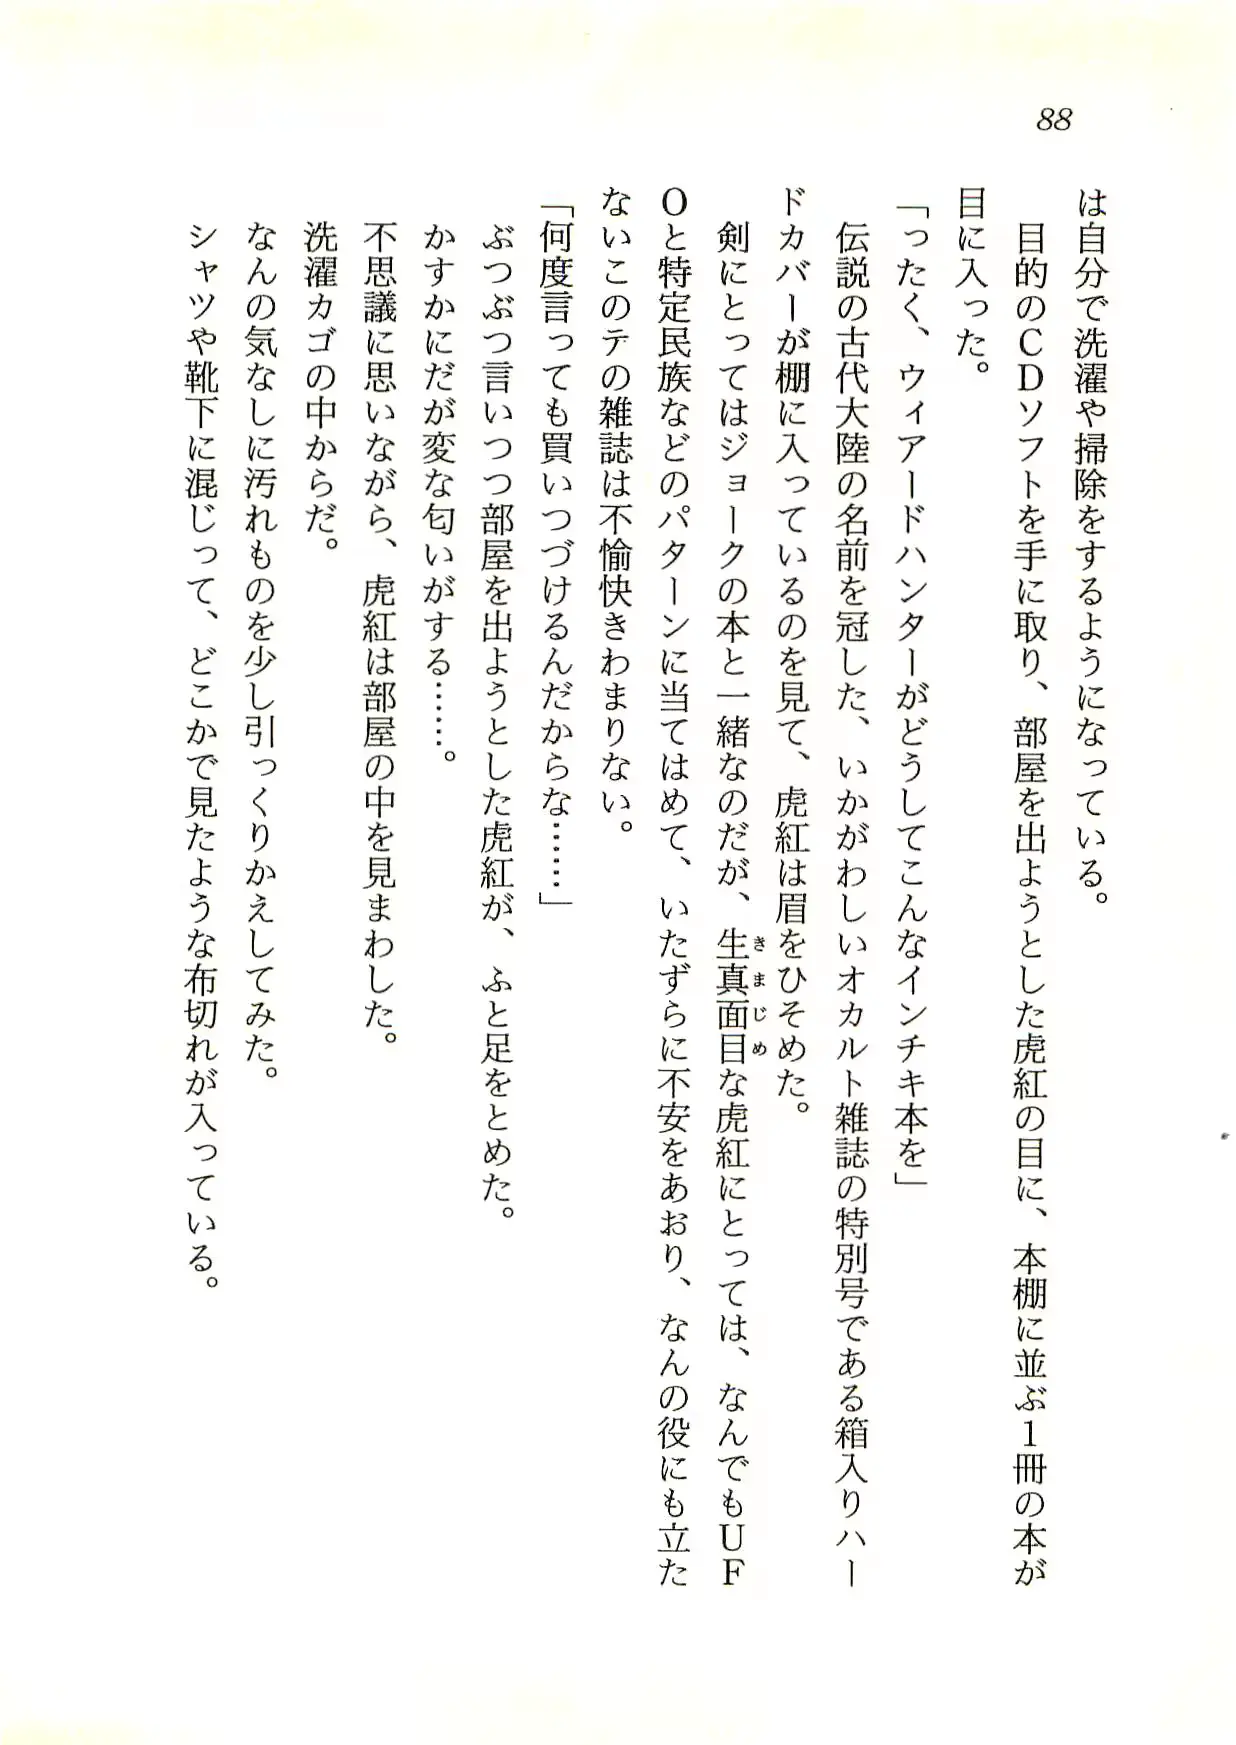 88
は自分で洗濯や掃除をするようになっている。
目的のCDソフトを手に取り、部屋を出ようとした虎紅の目に、本棚に並ぶ1冊の本が
目に入った。
「ったく、ウィアードハンターがどうしてこんなインチキ本を」
伝説の古代大陸の名前を冠した、いかがわしいオカルト雑誌の特別号である箱入りハー
ドカバーが棚に入っているのを見て、虎紅は眉をひそめた。
剣にとってはジョークの本と一緒なのだが、生真面目な虎紅にとっては、なんでもUF
きまじめ
Oと特定民族などのパターンに当てはめて、いたずらに不安をあおり、なんの役にも立た
ないこのテの雑誌は不愉快きわまりない。
「何度言っても買いつづけるんだからな……」
ぶつぶつ言いつつ部屋を出ようとした虎紅が、ふと足をとめた。
かすかにだが変な匂いがする……。
不思議に思いながら、虎紅は部屋の中を見まわした。
洗濯カゴの中からだ。
なんの気なしに汚れものを少し引っくりかえしてみた。
シャツや靴下に混じって、どこかで見たような布切れが入っている。